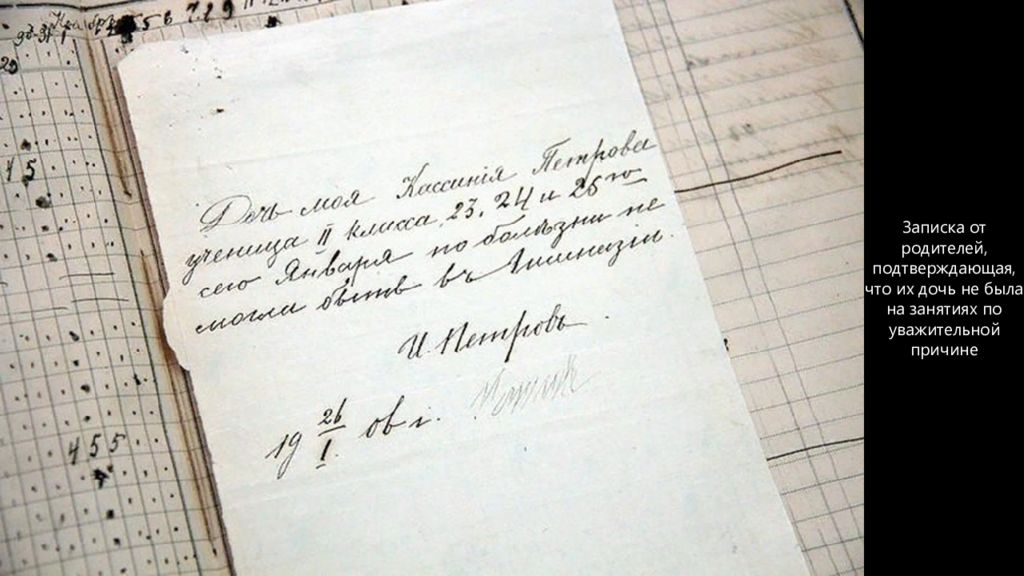 Дочь моя Кассинія Петрова
ученица II класса 23, 24 и 25го
сего Января по болѣзни не
могла быть въ Гимназіи.
И. Петровъ.
19 26/I 06 г.
455
15
Записка от
родителей,
подтверждающая,
что их дочь не была
на занятиях по
уважительной
причине